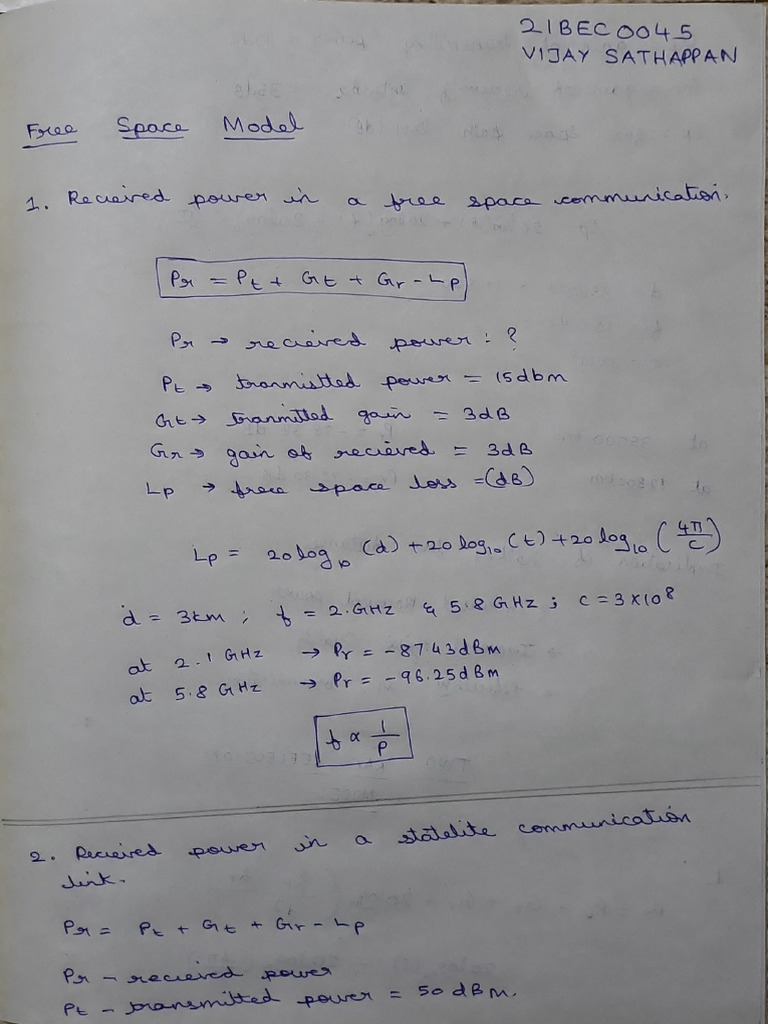 21BEC0045
VIJAY SATHAPPAN
Free Space Model
1. Recieived power in a free space communication.
Pr = Pt + Gt + Gr - Lp
Pr → recieved power : ?
Pt → tranmistted power = 15dbm
Gt → tranmitted gain = 3dB
Gr → gain of recieved = 3dB
Lp → free space loss = (dB)
Lp = 20 log10 (d) + 20 log10 (t) + 20 log10 (4π/c)
d = 3km ; f = 2.GHz & 5.8 GHz ; c = 3×10^8
at 2.1 GHz → Pr = -87.43dBm
at 5.8 GHz → Pr = -96.25dBm
f ∝ 1/P
2. Recieived power in a statelite communication
link.
Pr = Pt + Gt + Gr - Lp
Pr - recieved power
Pt - transmitted power = 50 dBm.